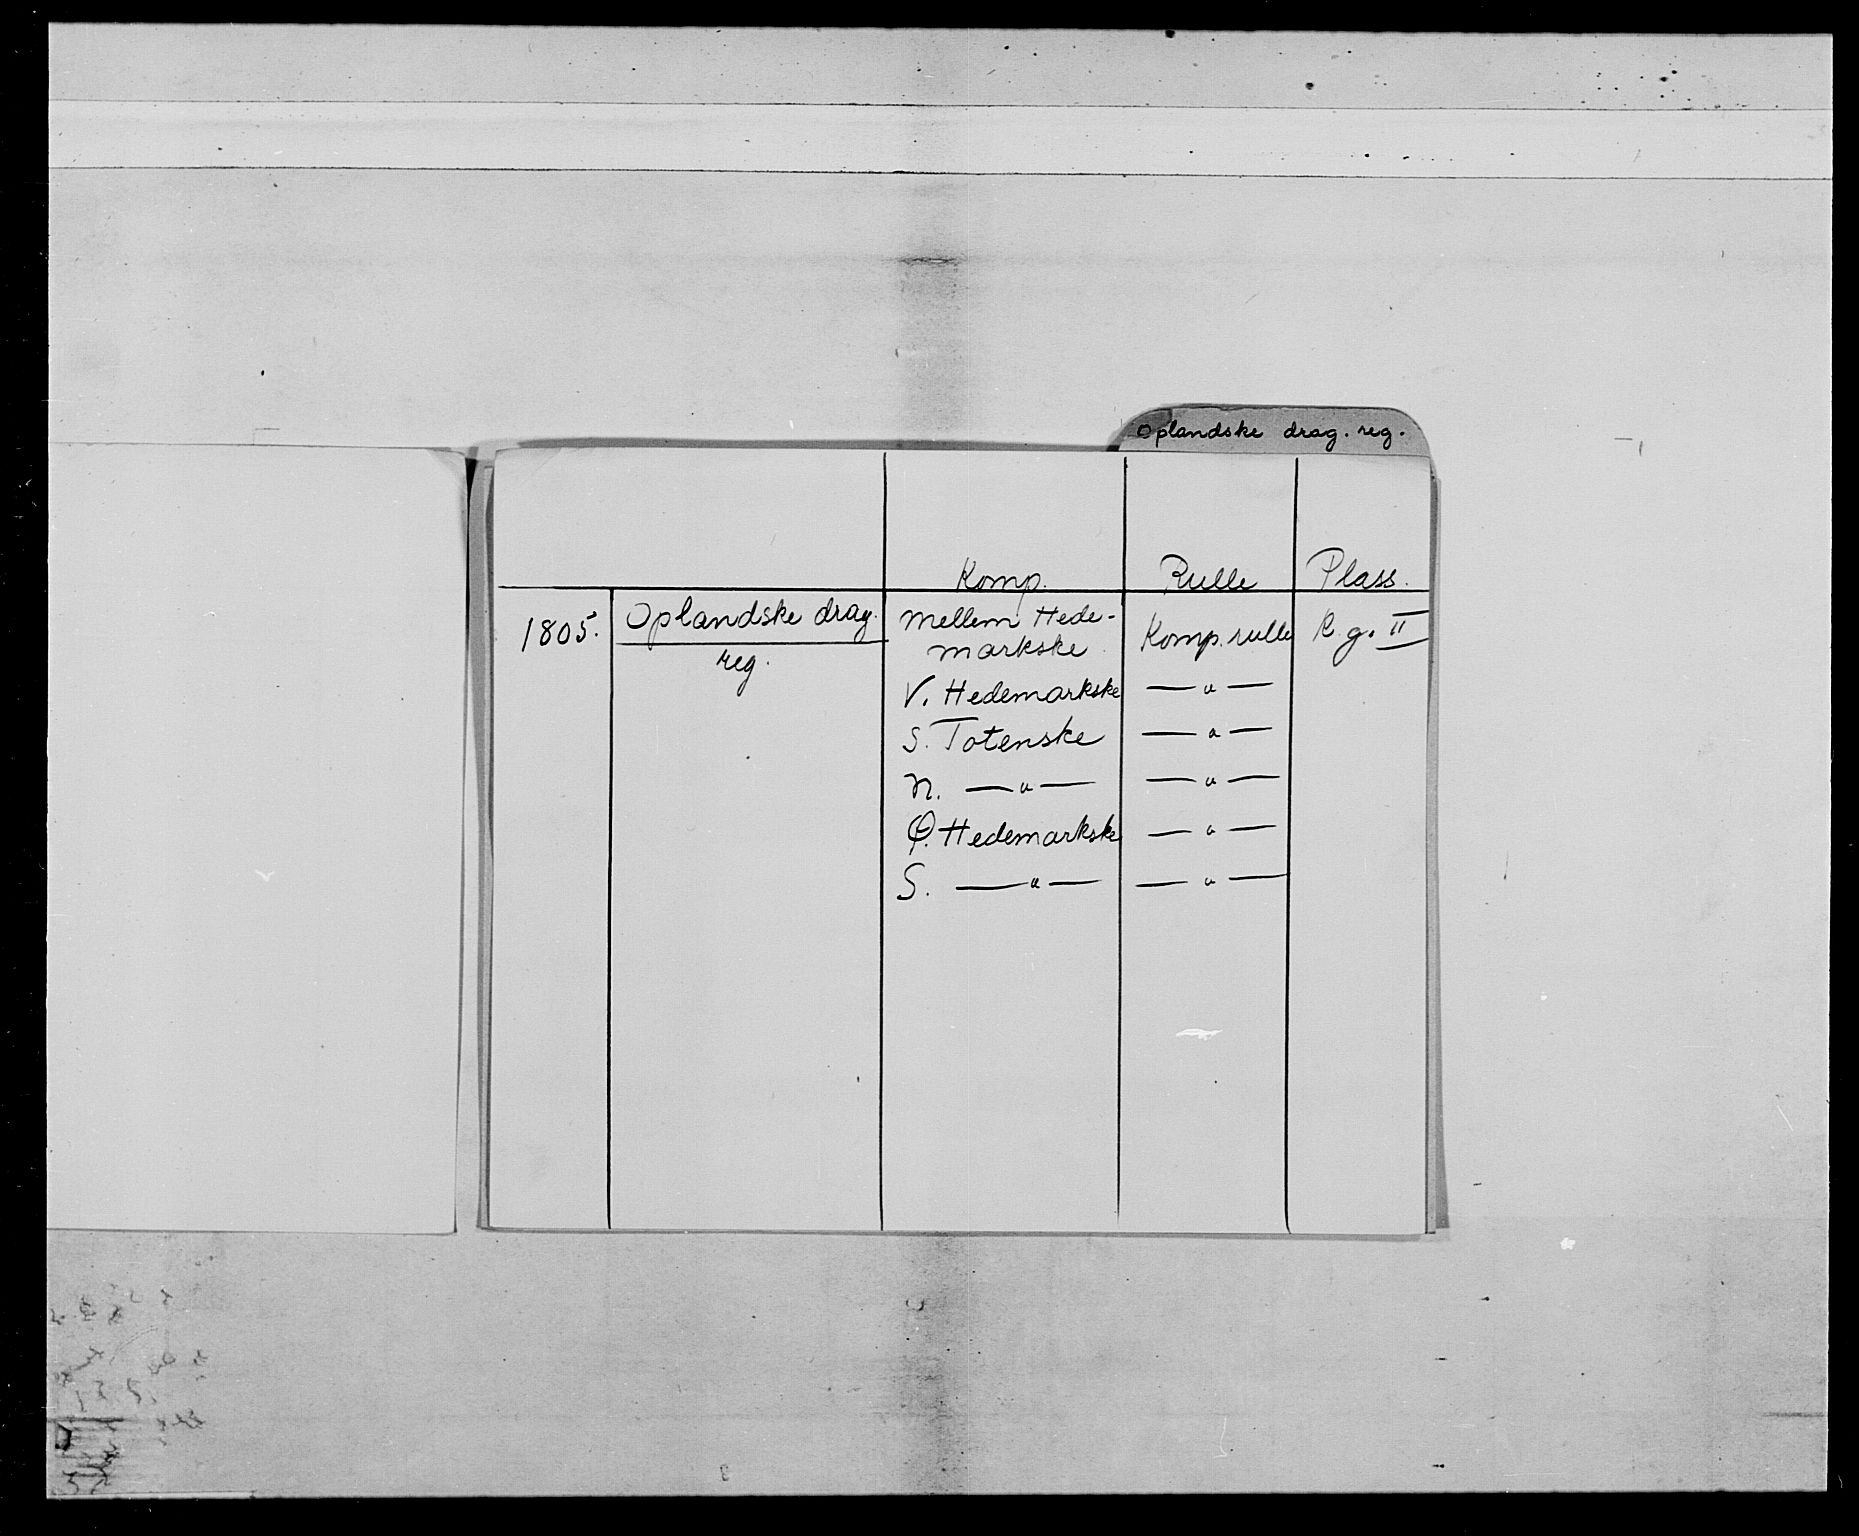 Oplandske drag. reg.
Komp. Rulle Plass.
1805. Oplandske drag. reg. Mellem Hede-
markske Komp. rulle R.g. II
V. Hedemarkske —〃—
S. Totenske —〃—
N. —〃— —〃—
Ø. Hedemarkske —〃—
S. —〃— —〃—